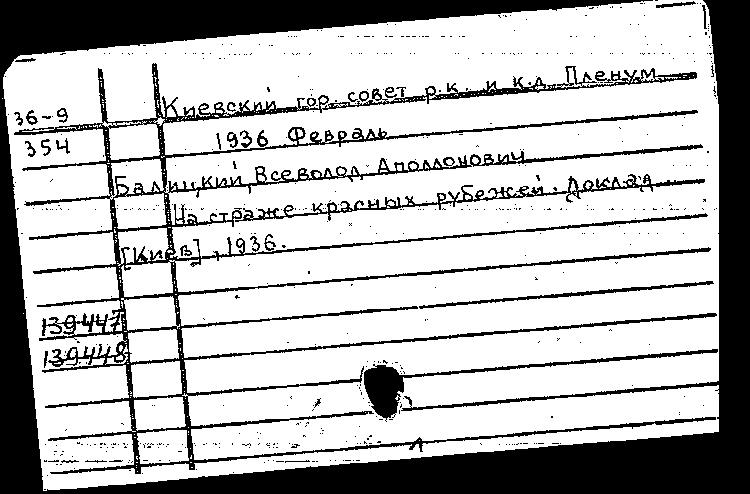 Киевский гор. совет р.к. и к.д. Пленум
36-9
354
1936 Февраль
Балицкий, Всеволод Аполлонович
На страже красных рубежей. Доклад..
[Киев], 1936.
139447
139448
1